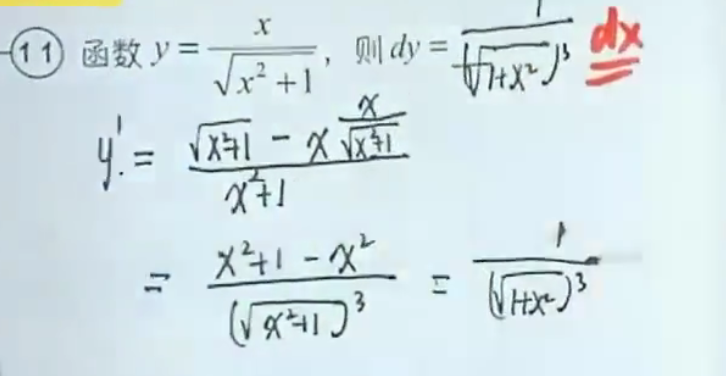 ⑪ 函数 y = x/√(x²+1), 则 dy = 1/(√(1+x²))³ dx
y' = (√(x²+1) - x x/√(x²+1))/(x²+1)
= (x²+1-x²)/(√(x²+1))³ = 1/(√(1+x²))³